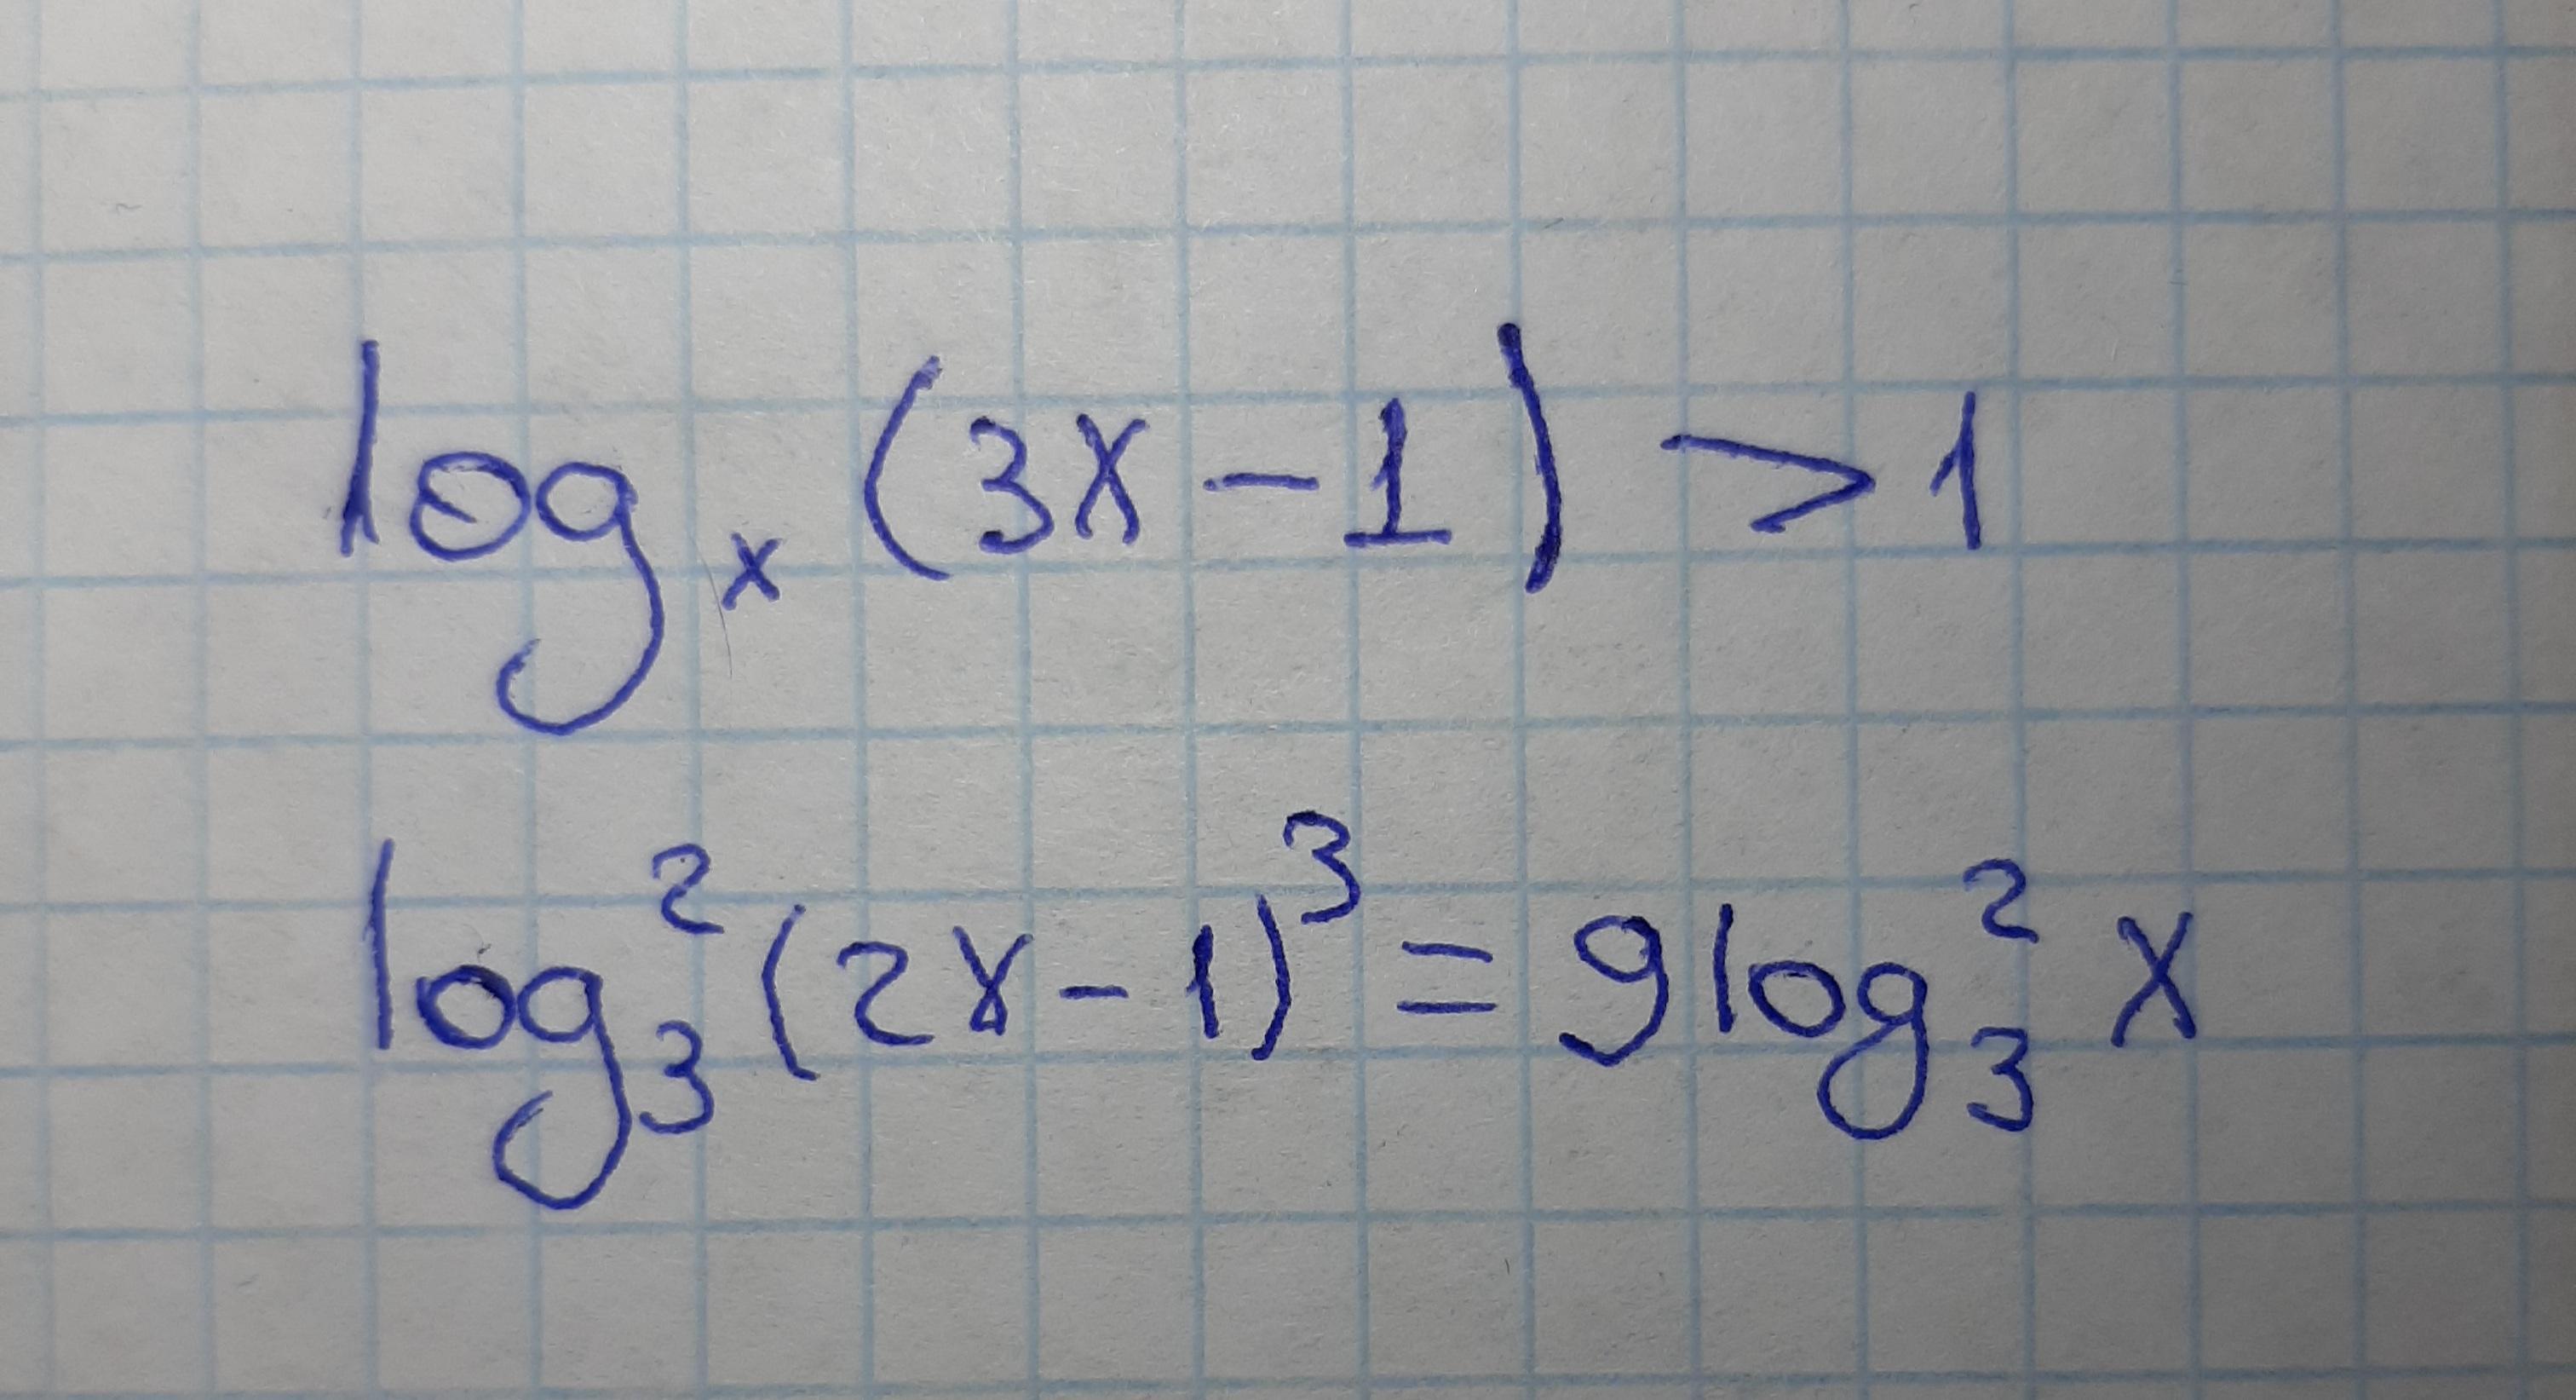 logₓ (3x - 1) > 1
log₃² (2x - 1)³ = 9 log₃² x